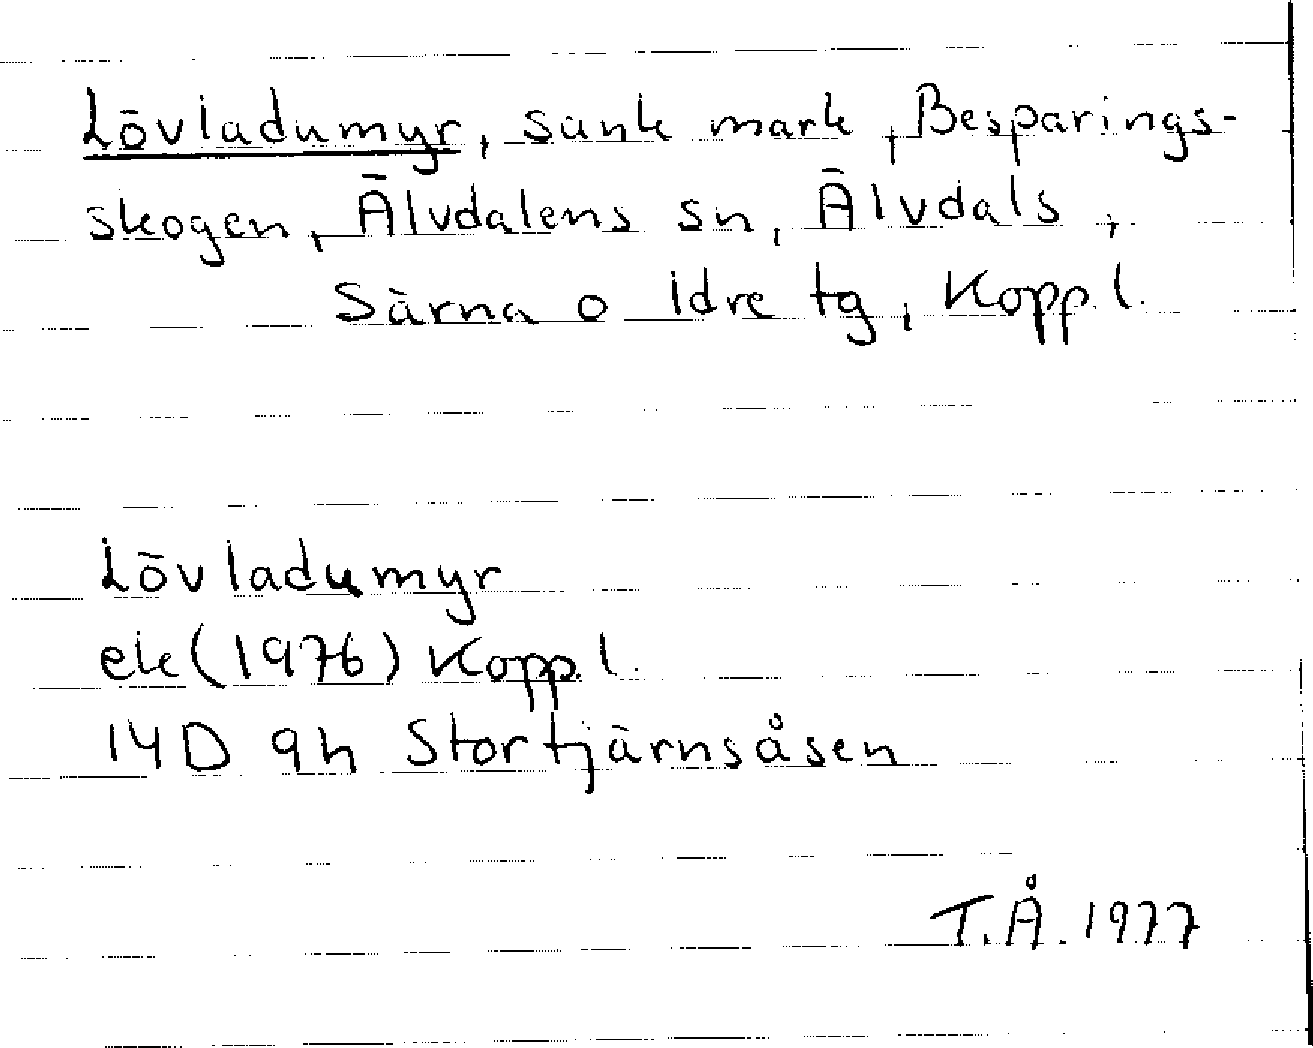 Lövladumyr, sank mark, Besparings-
skogen, Älvdalens sn, Älvdals,
Särna o Idre tg, Kopp. l.
Lövladumyr
ek (1976) Kopp. l.
14D 9h Stortjärnsåsen
T.Å. 1977